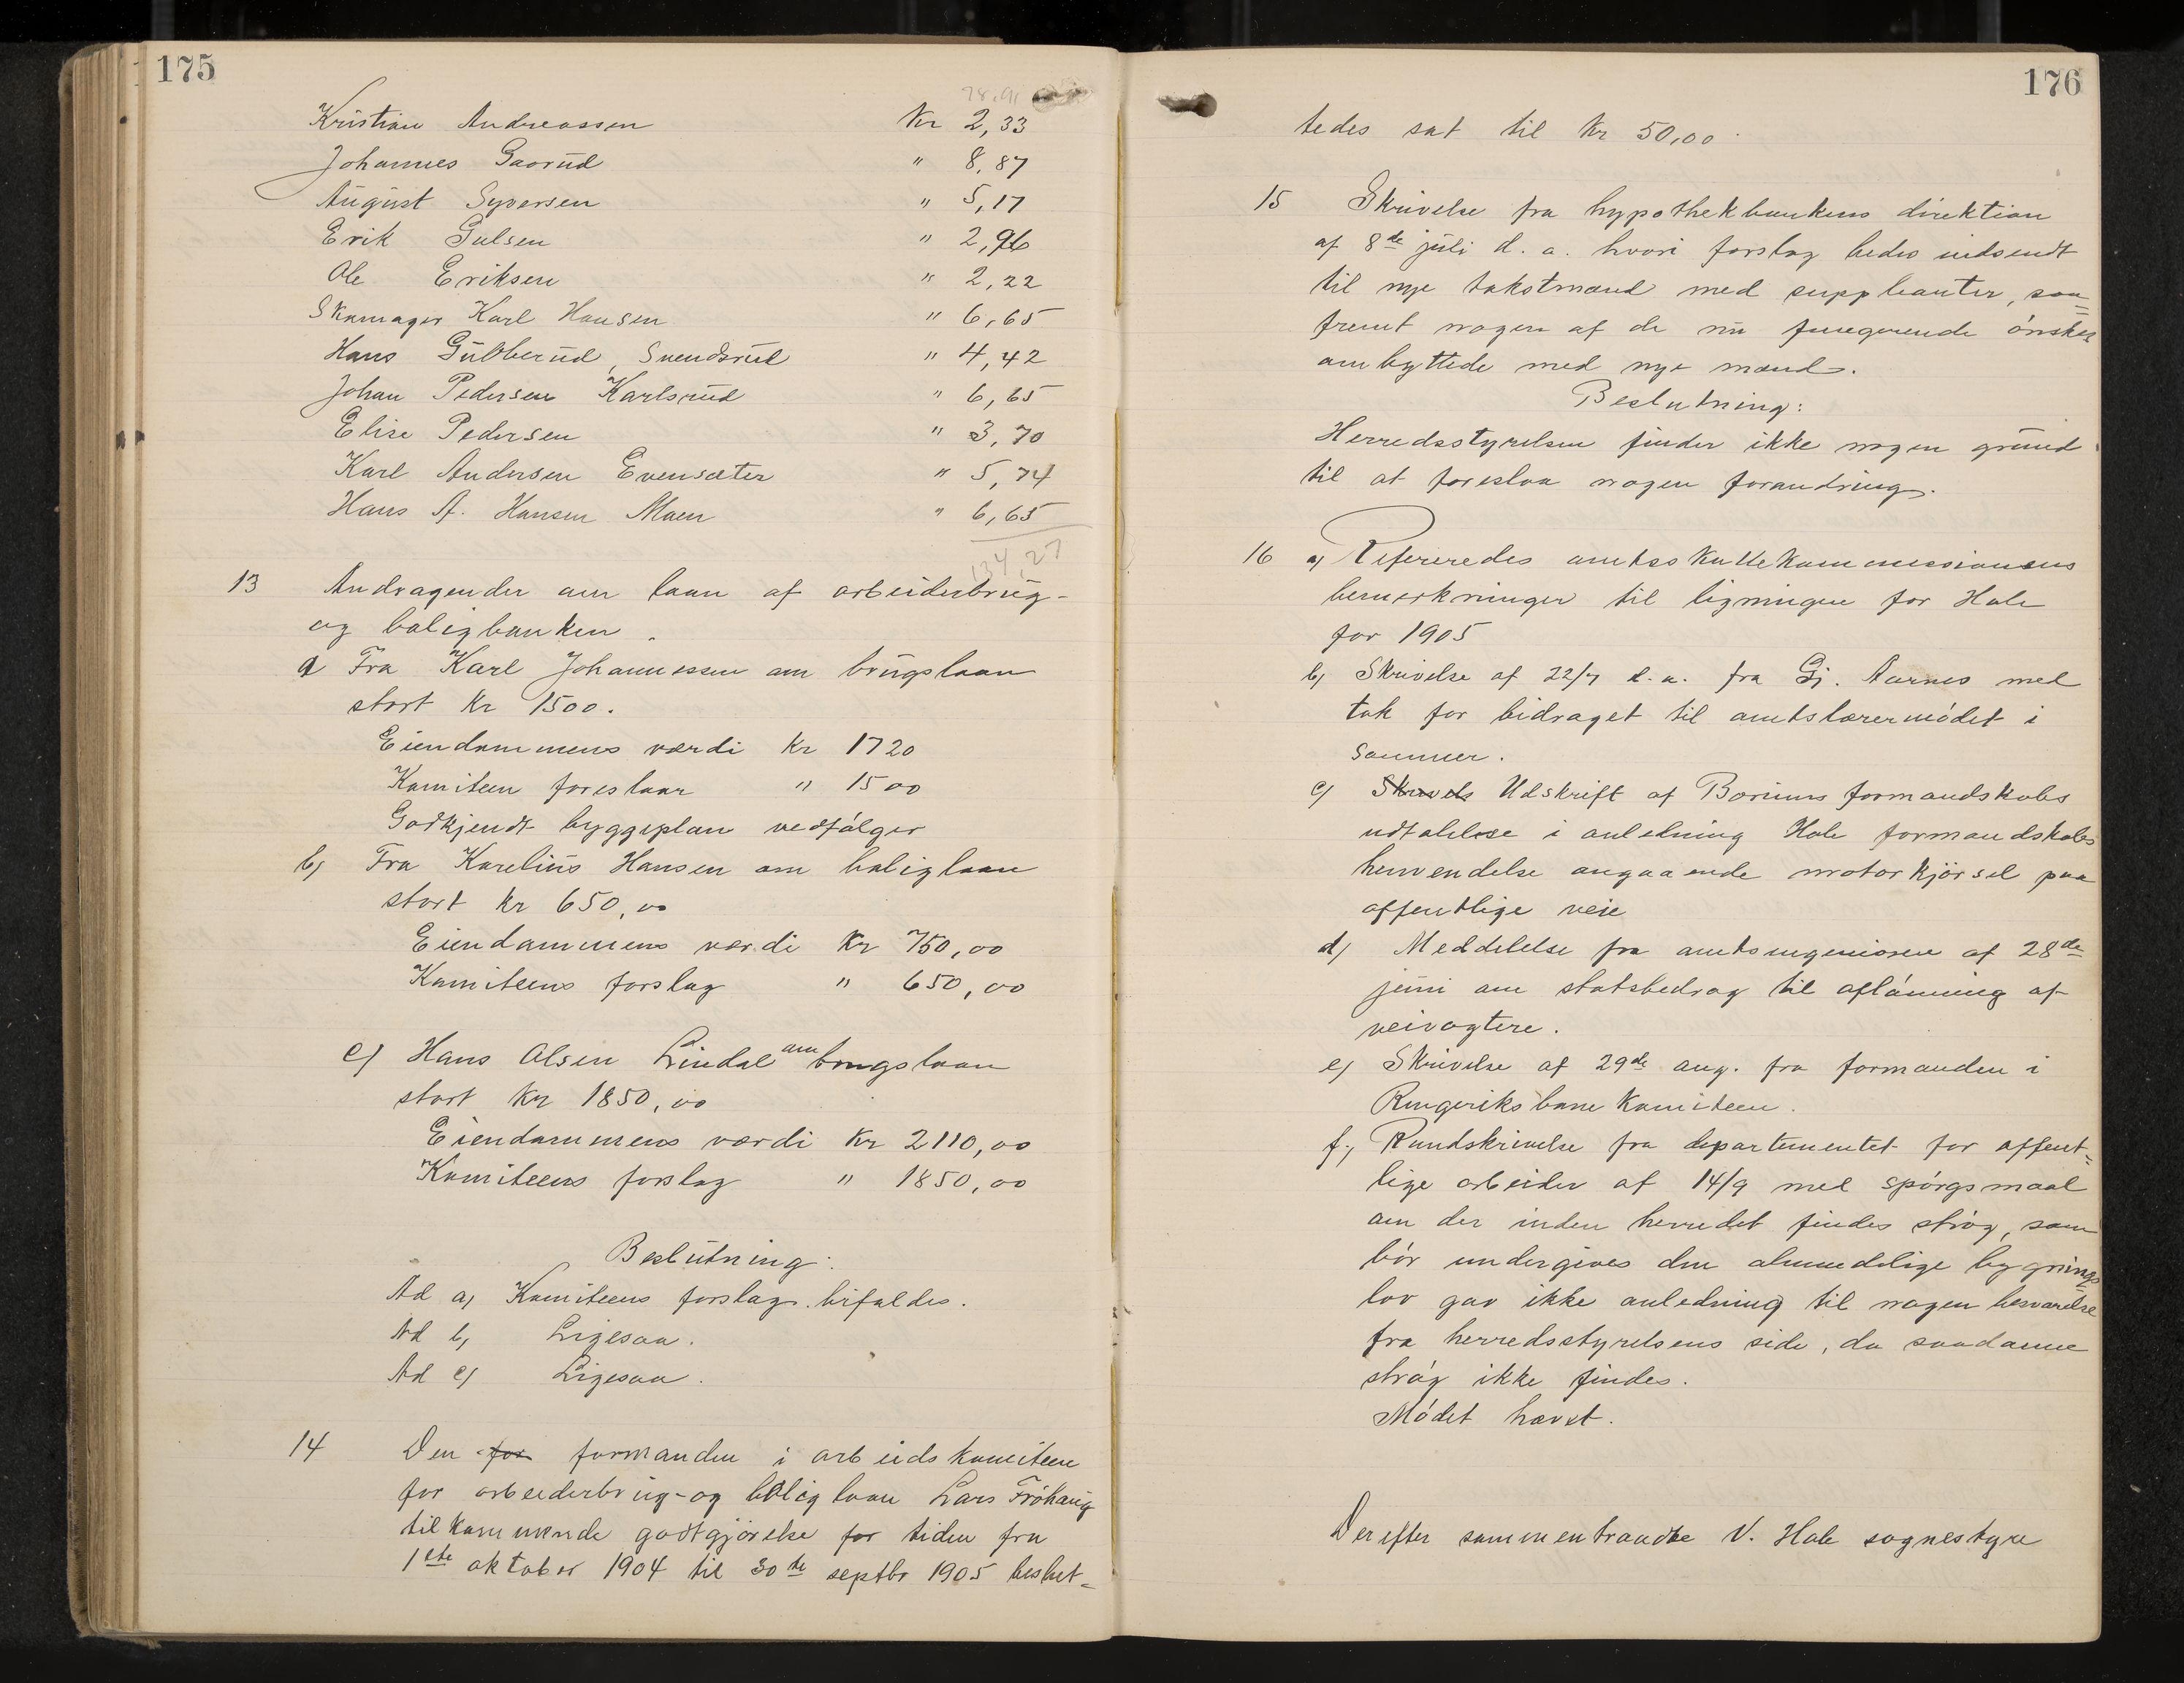 175
78,91
Kristian Andreassen Kr 2,33
Johannes Gaarud " 8,87
August Syversen " 5,17
Erik Gulsen " 2,96
Ole Eriksen " 2,22
Skomager Karl Hansen " 6,65
Hans Gulbberud, Svendsrud " 4,42
Johan Pedersen Karlsrud " 6,65
Elise Pedersen " 3,70
Karl Andersen Evensæter " 5,74
Hans A. Hansen Moen " 6,65
134,27
13 Andragender om laan af arbeiderbrug-
og boligbanken.
a Fra Karl Johannessen om brugslaan
stort Kr 1500.
Eiendommens værdi Kr 1720
Komiteen foreslaar " 1500
Godkjendt byggeplan vedfölger
b) Fra Karelius Hansen om boliglaan
stort kr 650,00
Eiendommens værdi Kr 750,00
Komiteens forslag " 650,00
c) Hans Olsen Lindal om brugslaan
stort Kr 1850,00
Eiendommens værdi Kr 2110,00
Komiteens forslag " 1850,00
Beslutning:
Ad a) Komiteens forslag bifaldes.
Ad b) Ligesaa.
Ad c) Ligesaa.
14 Den for formanden i arbeidskomiteen
for arbeiderbrug- og boliglaan Lars Fröhaug
tilkommende godtgjörelse for tiden fra
1ste oktober 1904 til 30te septbr 1905 beslut-
176
tedes sat til Kr 50,00.
15 Skrivelse fra hypothekbankens direktion
af 8de juli d. a. hvori forslag bedes indsendt
til nye takstmænd med suppleanter, saa-
fremt nogen af de nu fungerende önskes
ombyttede med nye mænd.
Beslutning:
Herredsstyrelsen finder ikke nogen grund
til at foreslaa nogen forandring.
16 a) Refereredes amtsskattekommissionens
bemerkninger til ligningen for Hole
for 1905
b) Skrivelse af 22/7 d.a. fra Gj. Aarnes med
tak for bidraget til amtslærermödet i
sommer.
c) Skrivels Udskrift af Bærums formandskabs
udtalelse i anledning Hole formandskabs
henvendelse angaaende motorkjörsel paa
offentlige veie
d) Meddelelse fra amtsingeniören af 28de
juni om statsbedrag til aflönning af
veivogtere.
e) Skrivelse af 29de aug. fra formanden i
Ringeriksbanekomiteen.
f.) Rundskrivelse fra departementet for offent-
lige arbeider af 14/9 med spörgsmaal
om der inden herredet findes strög, som
bör undergives den almindelige bygnings-
lov gav ikke anledning til nogen besvarelse
fra herredsstyrelsens side, da saadanne
strög ikke findes.
Mödet hævet.
Derefter sammentraadte N. Hole sognestyre